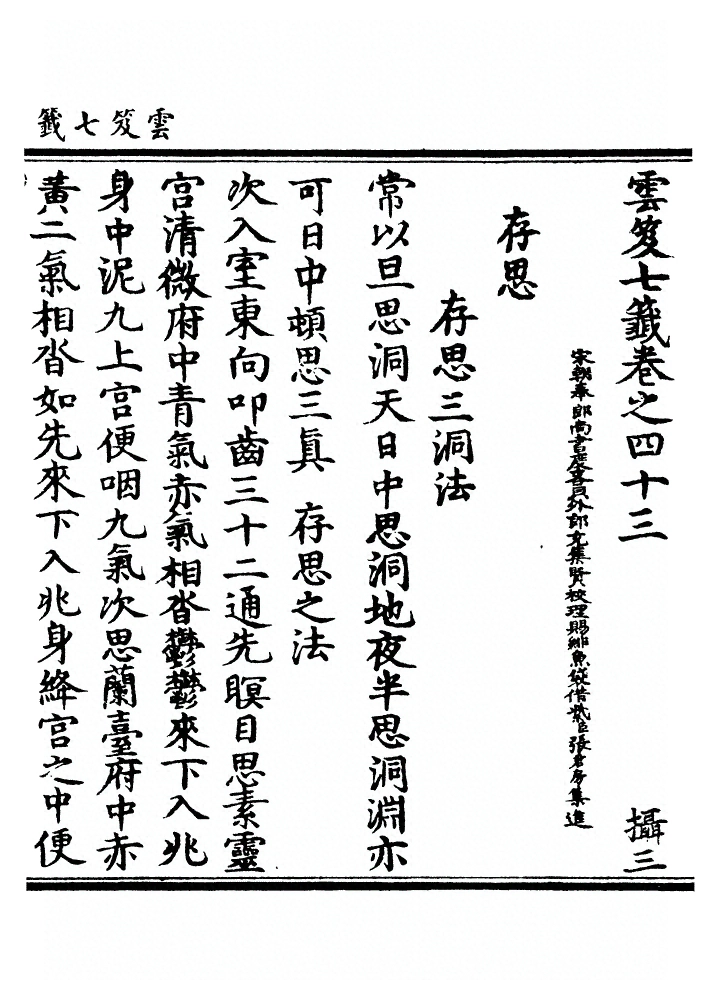 雲笈七籤
雲笈七籤卷之四十三　攝三
宋朝奉郎尚書度支員外郎充集賢校理賜緋魚袋借紫臣張君房集進
存思
存思三洞法
常以旦思洞天日中思洞地夜半思洞淵亦
可日中頓思三眞　存思之法
次入室東向叩齒三十二通先瞑目思素靈
宮清微府中青氣赤氣相沓鬱鬱來下入兆
身中泥九上宮便咽九氣次思蘭臺府中赤
黃二氣相沓如先來下入兆身絳宮之中便